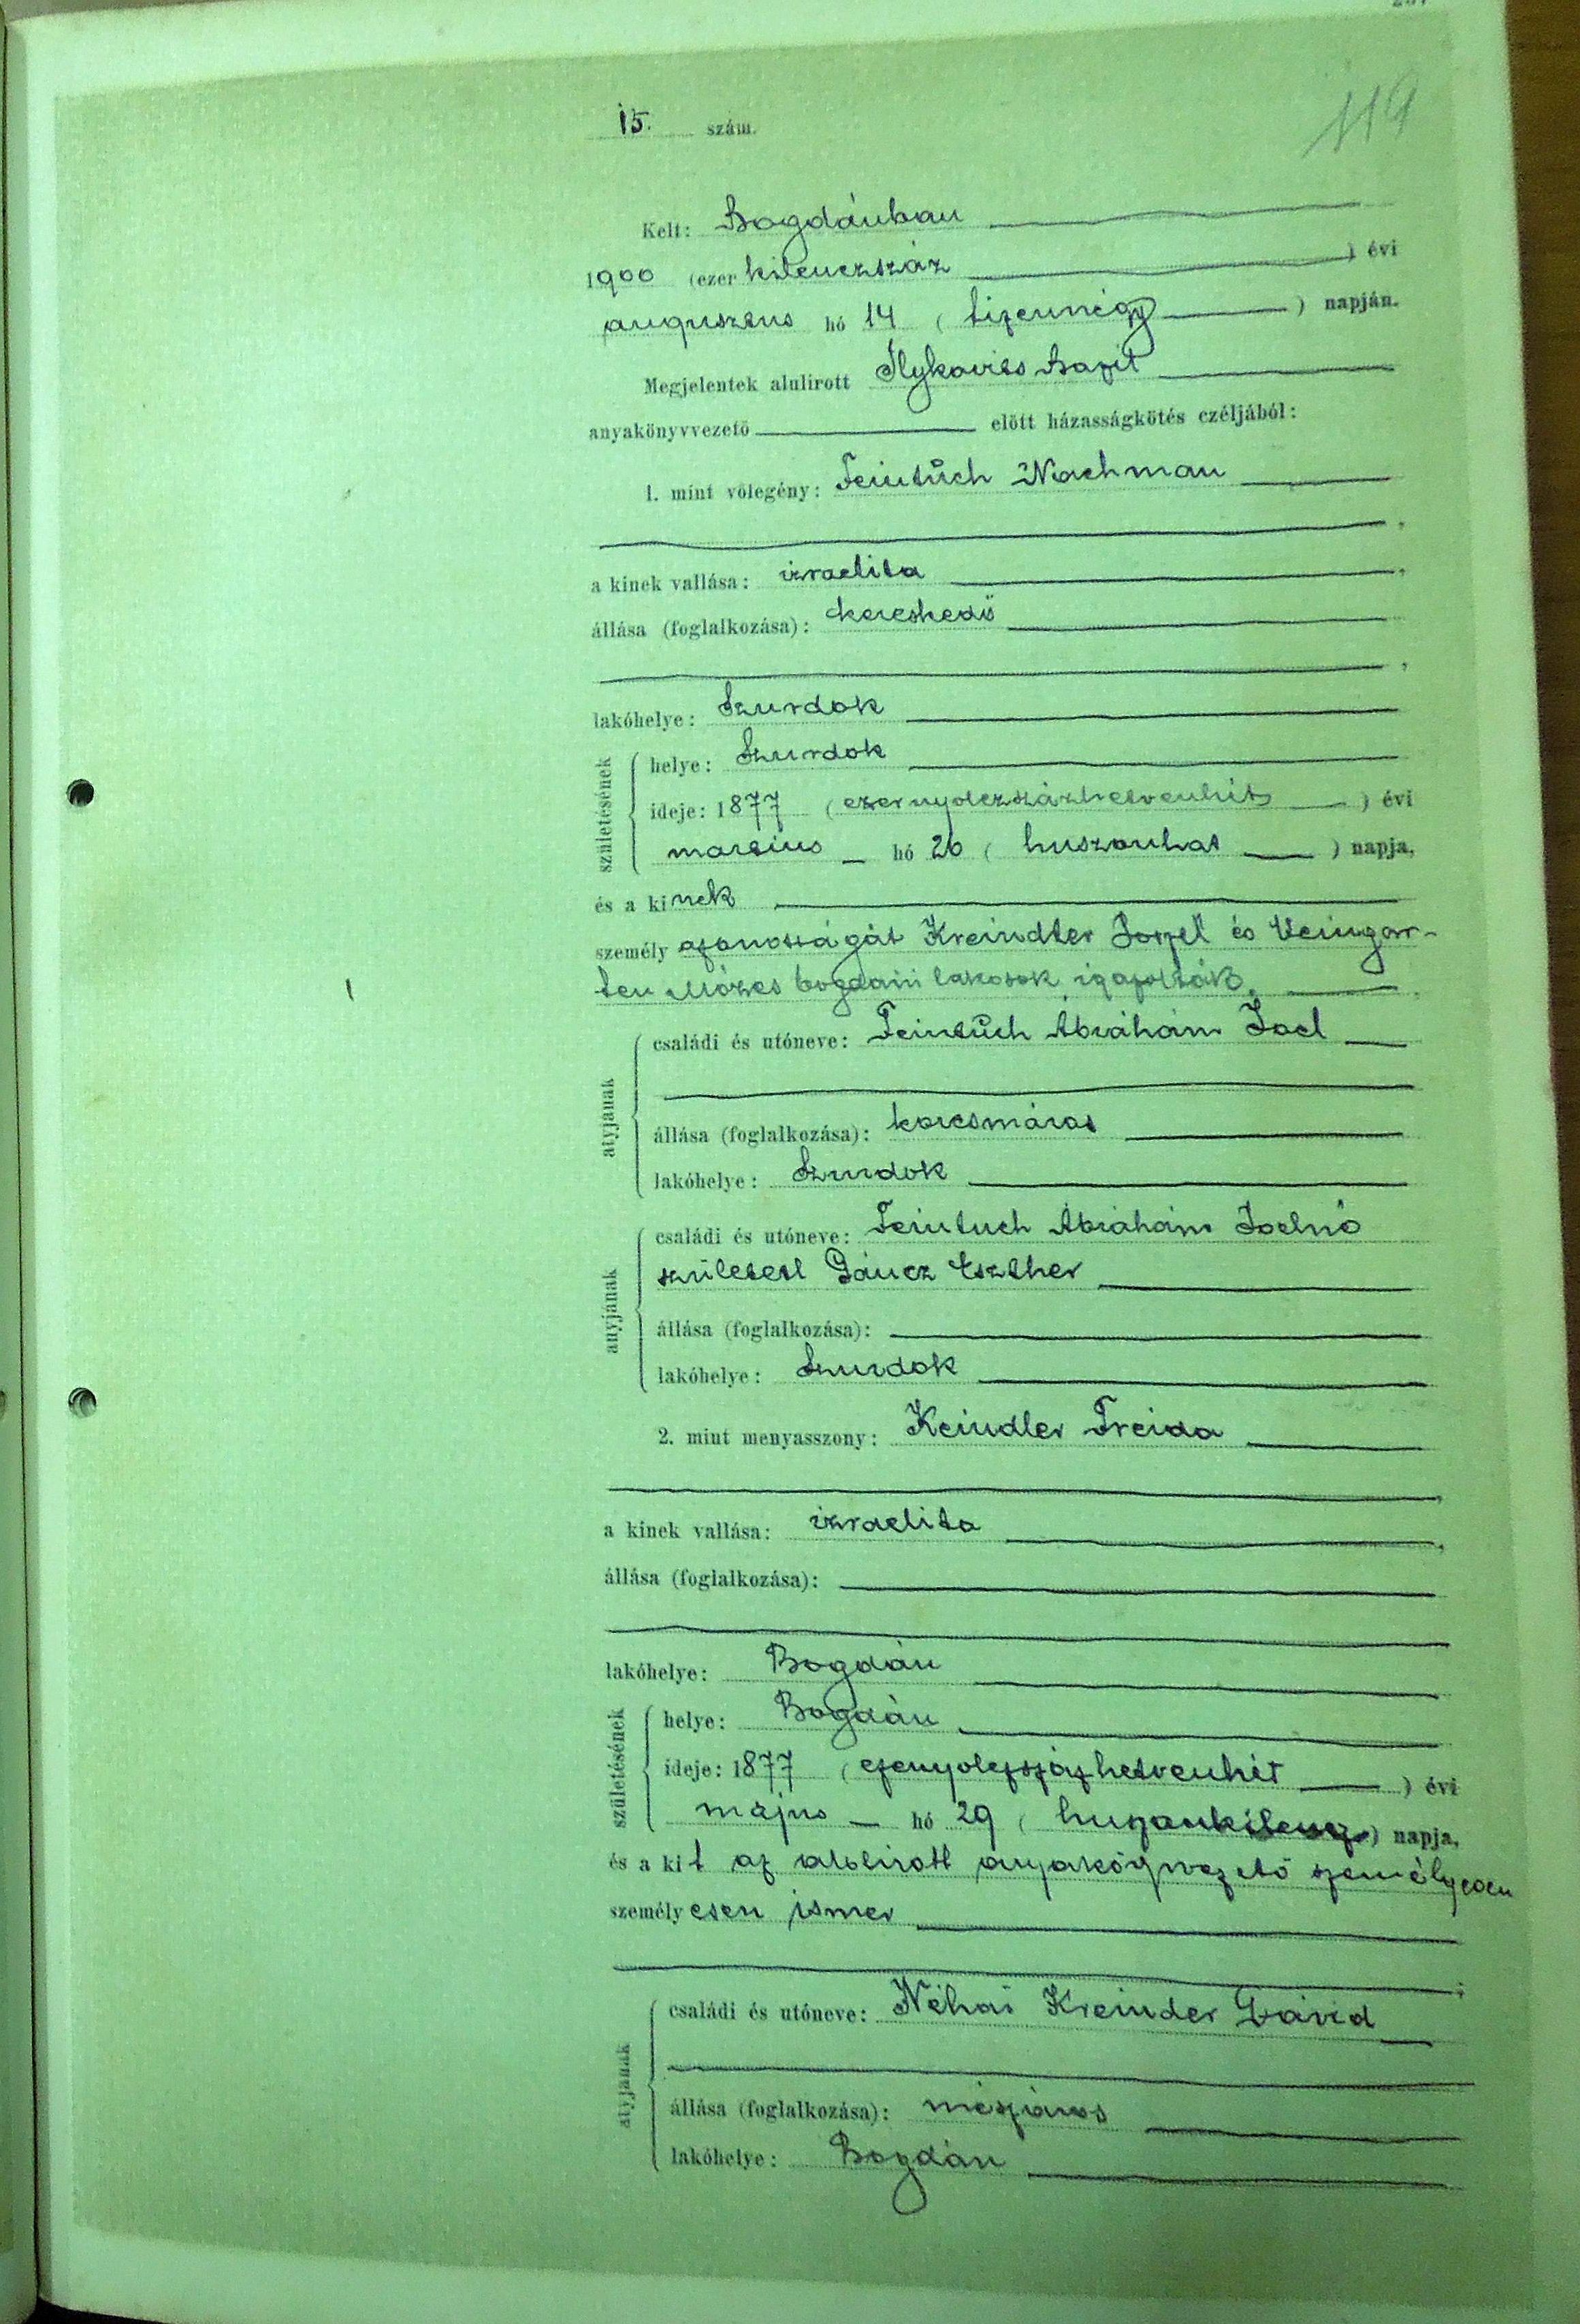 119
15. szám.
Kelt: Bogdánban
1900 (ezer kilenczszáz ) évi
augusztus hó 14 ( tizennégy ) napján.
Megjelentek alulirott Ilykovits Bazil
anyakönyvvezető előtt házasságkötés czéljából:
1. mint vőlegény: Feintuch Nachman
,
a kinek vallása: izraelita ,
állása (foglalkozása): kereskedő
,
lakóhelye: Szurdok
születésének
helye: Szurdok
ideje: 1877 (ezernyolczszázhetvenhét ) évi
martius hó 26 ( huszonhat ) napja,
és a kinek
személy azonosságát Kreindler Joszel és Veingar-
ten Mózes bogdáni lakosok igazolták.
atyjának
családi és utóneve: Feintuch Ábrahám Joel
állása (foglalkozása): korcsmáros
lakóhelye: Szurdok
anyjának
családi és utóneve: Feintuch Ábrahám Joelné
született Gáncz Eszther
állása (foglalkozása):
lakóhelye: Szurdok
2. mint menyasszony: Keindler Freida
,
a kinek vallása: izraelita ,
állása (foglalkozása):
lakóhelye: Bogdán
születésének
helye: Bogdán
ideje: 1877 (ezernyolczszázhetvenhét ) évi
május hó 29 ( huszonkilencz ) napja,
és a kit az alulirott anyakönyvvezető személyesen
személyesen ismer
;
atyjának
családi és utóneve: Néhai Kreinder Dávid
állása (foglalkozása): mészáros
lakóhelye: Bogdán